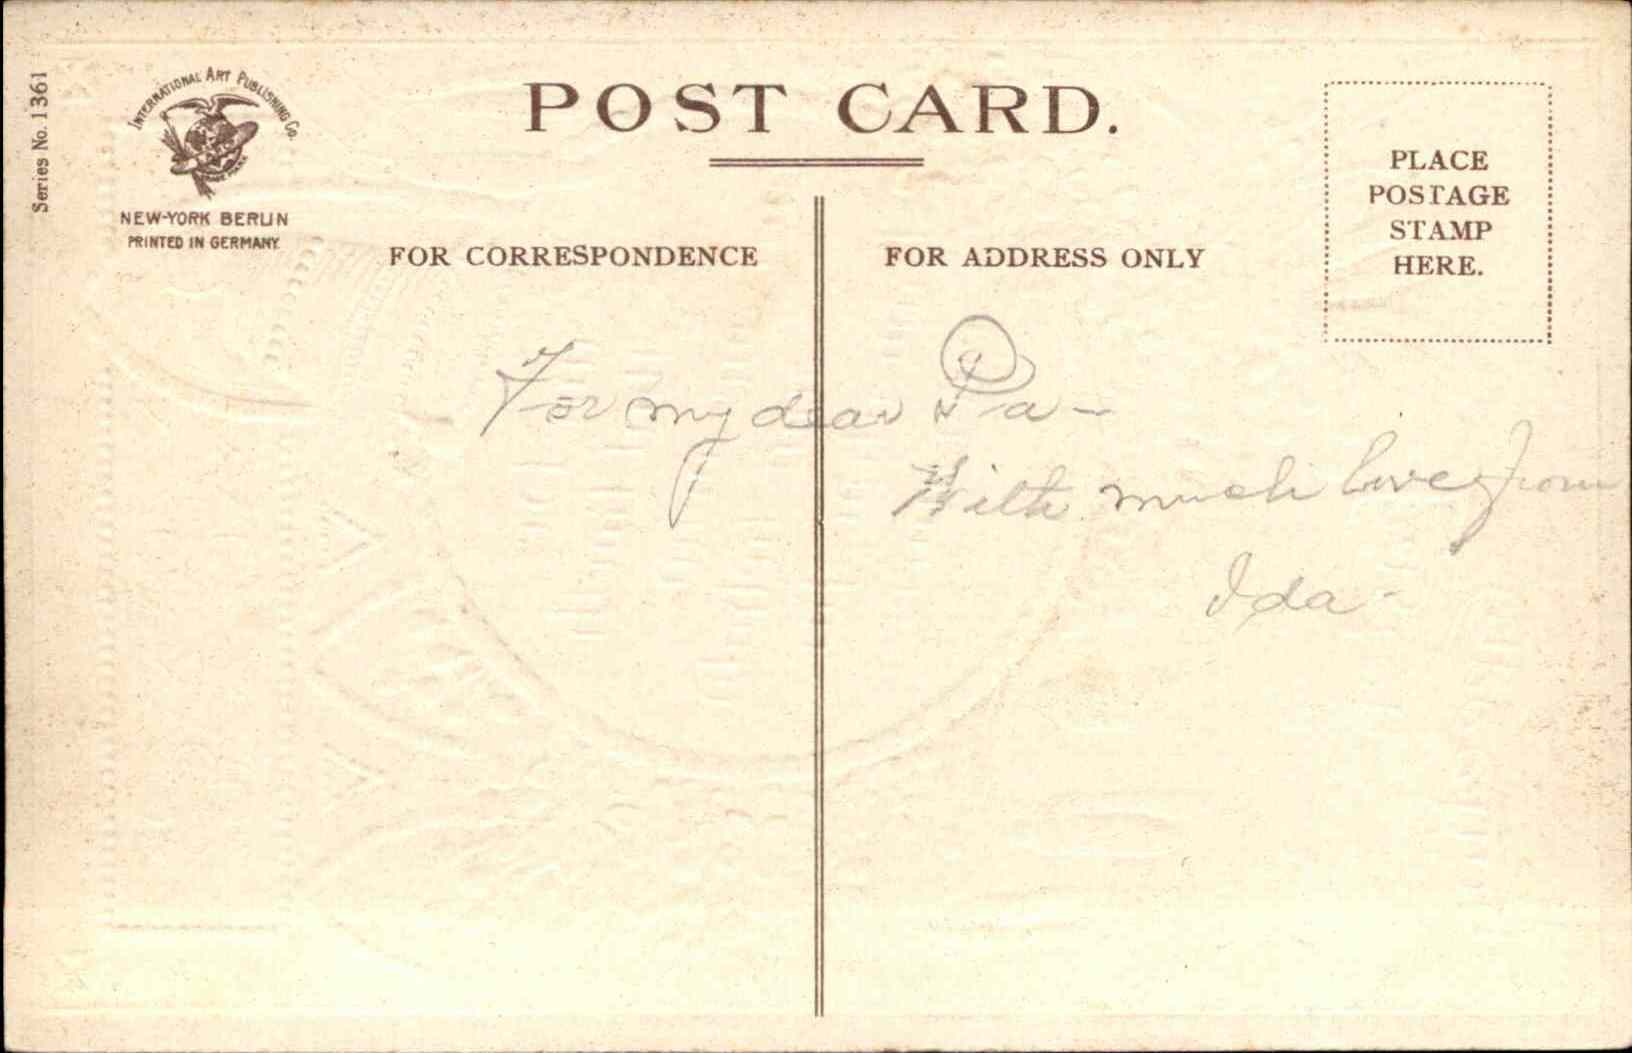 Series No. 1361
INTERNATIONAL ART PUBLISHING Co.
NEW-YORK BERLIN
PRINTED IN GERMANY.
POST CARD.
FOR CORRESPONDENCE
FOR ADDRESS ONLY
PLACE
POSTAGE
STAMP
HERE.
For my dear Pa -
With much love from
Ida -